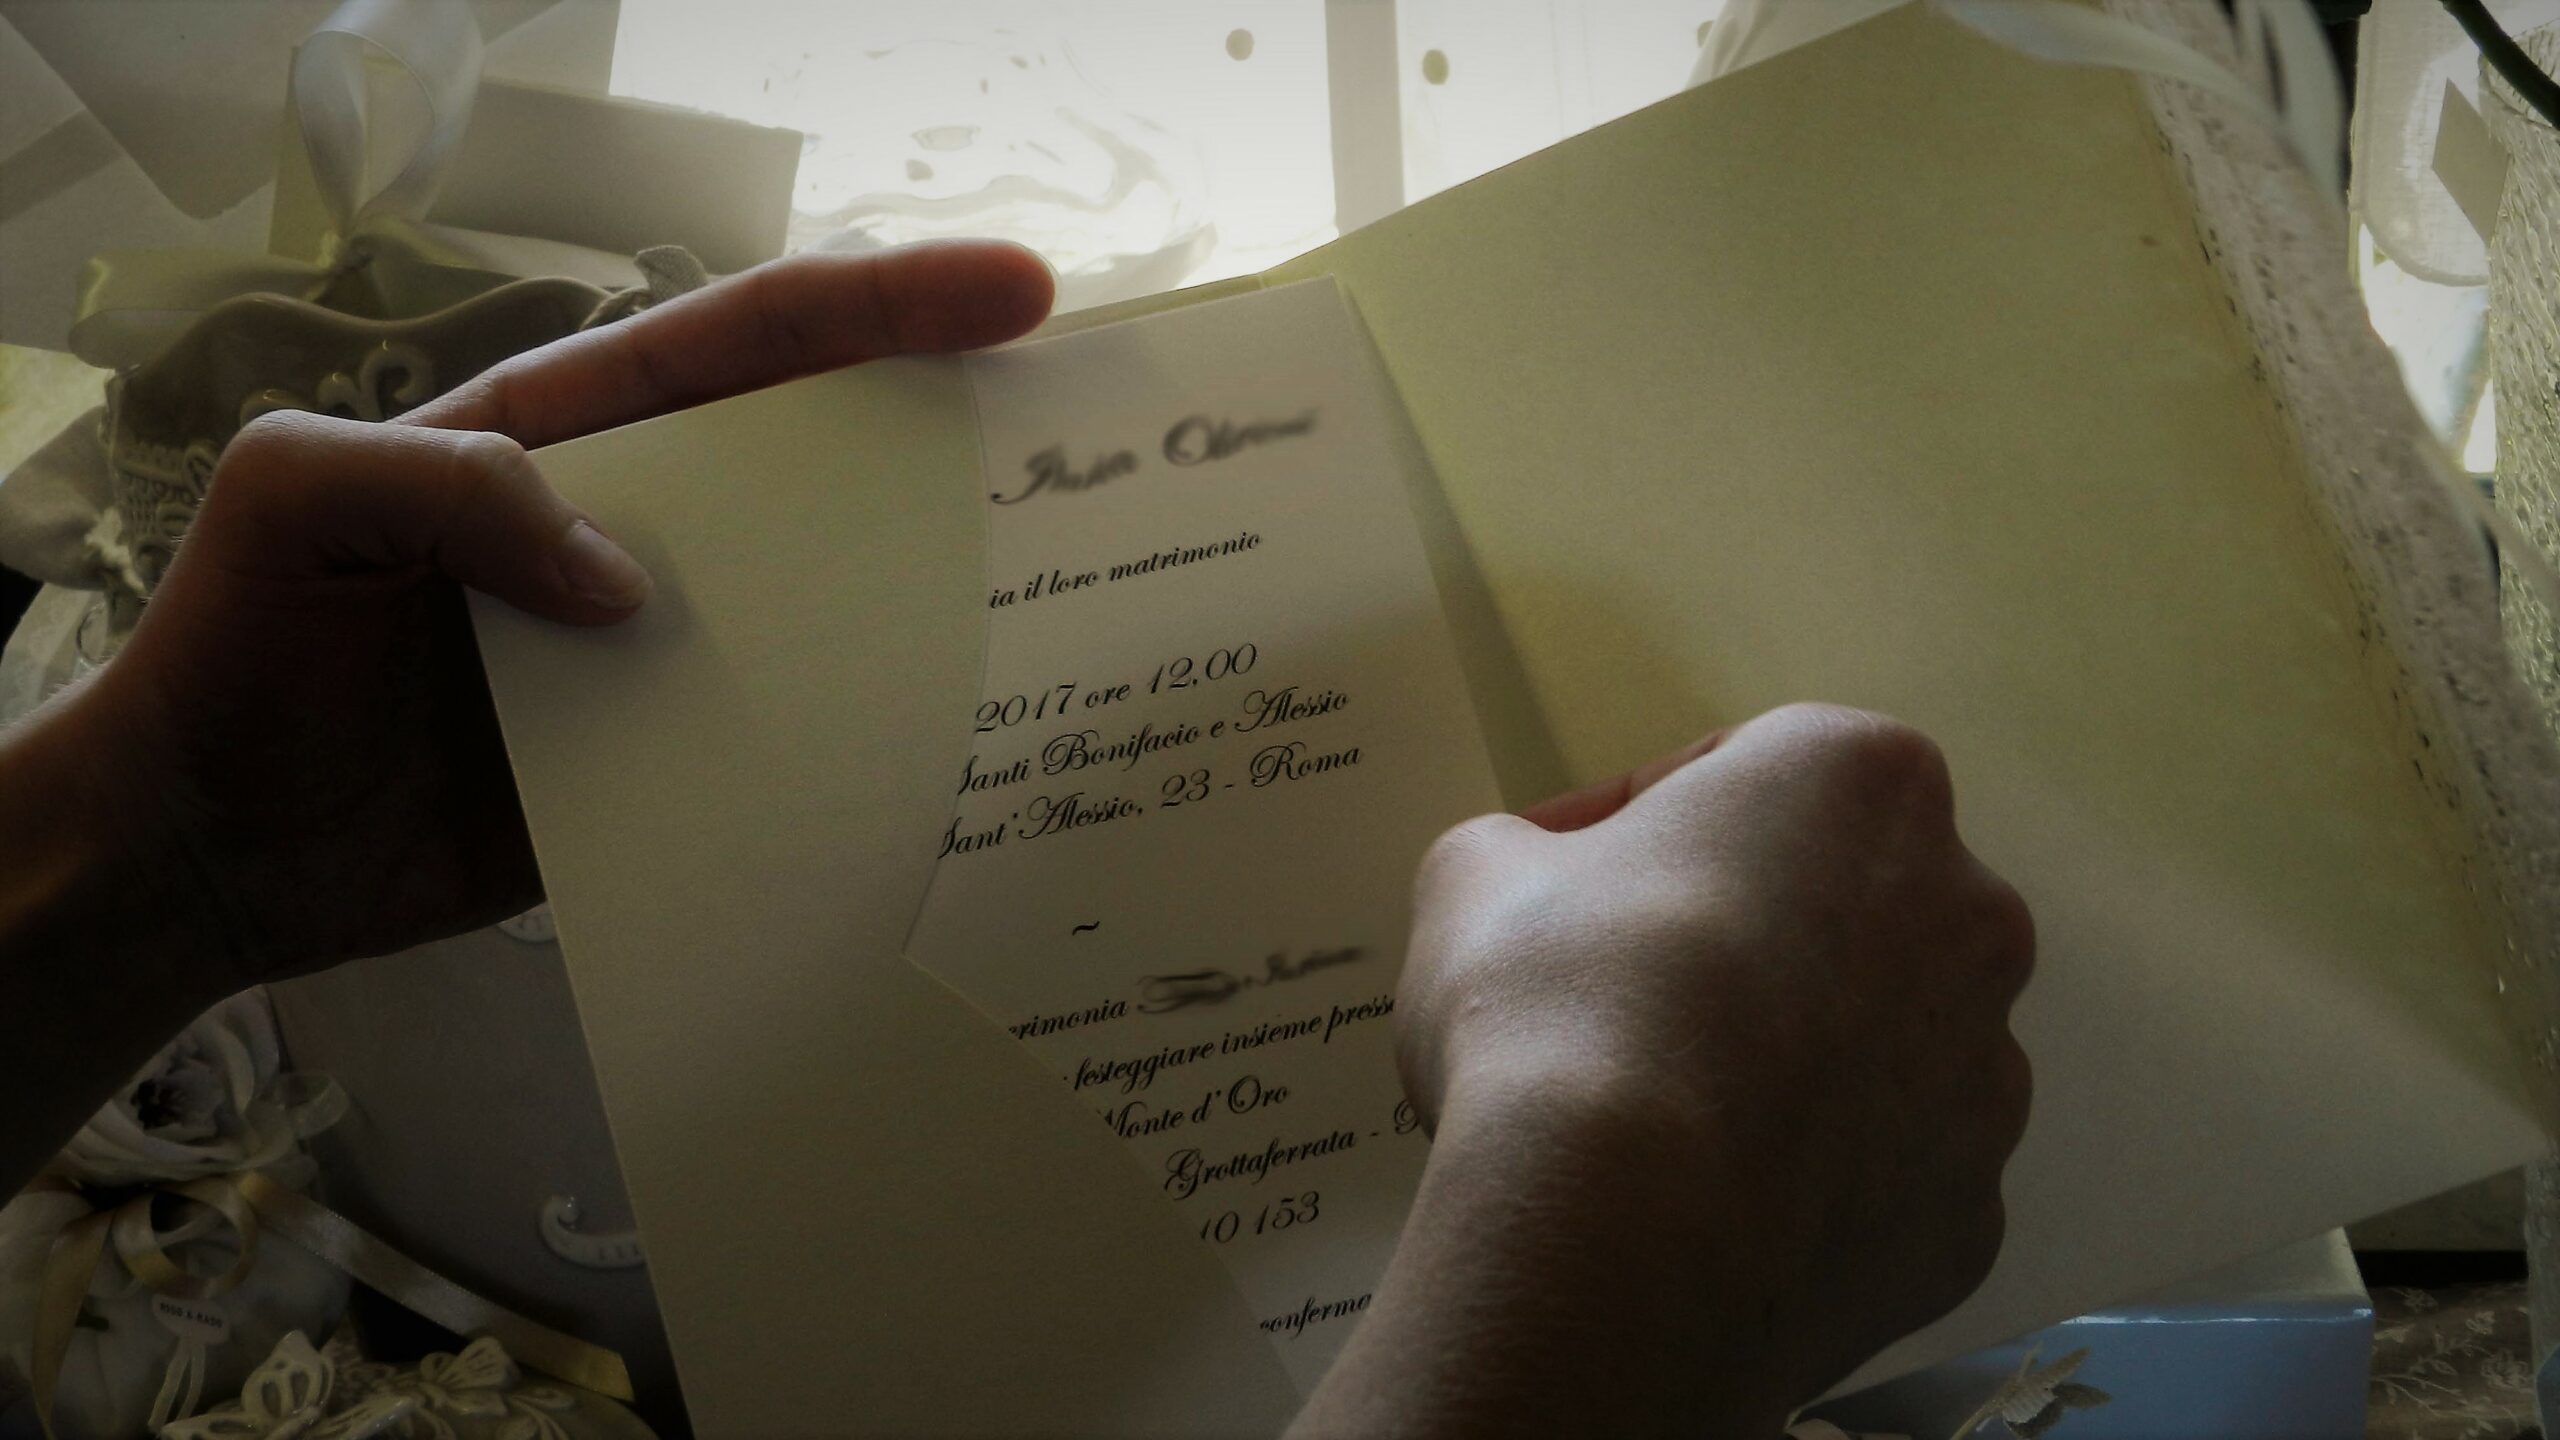 ia il loro matrimonio
2017 ore 12.00
Santi Bonifacio e Alessio
Sant'Alessio, 23 - Roma
~
rimonia
festeggiare insieme presso
Monte d'Oro
Grottaferrata -
10 153
conferma
RISO & RASO